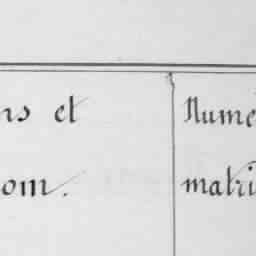 ns et
nom.
Numé
matri